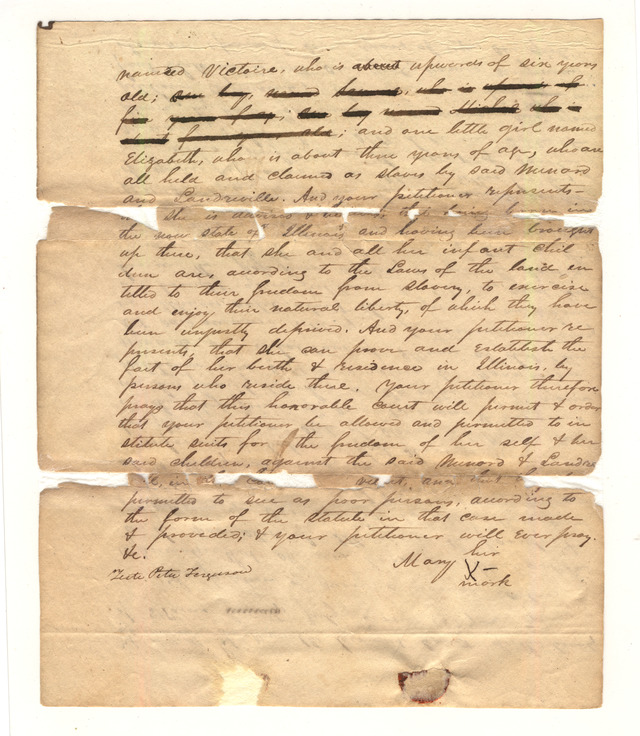 named Victoire, who is about upwards of six years
old; one boy, named who is upwards of
five years of age; one boy named who is
about four years old; and one little girl named
Elizabeth, who is about three years of age, who are
all held and claimed as slaves by said Menard
and Landreville. And your petitioner represents
she is advised & being born in
the now state of Illinois and having been brought
up there, that she and all her infant chil
dren are, according to the Laws of the land en
titled to their freedom from slavery, to exercise
and enjoy their natural liberty, of which they have
been unjustly deprived. And your petitioner re
presents, that she can prove and establish the
fact of her birth & residence in Illinois, by
persons who reside there. Your petitioner therefore
prays that this honorable court will permit & order
that your petitioner be allowed and permitted to in
stitute suits for the freedom of her self & her
said children, against the said Menard & Landre
in and that
permitted to sue as poor persons, according to
the form of the statute in that case made
& provided; & your petitioner will ever pray.
&c.
Mary her
X
mark
Teste Peter Ferguson